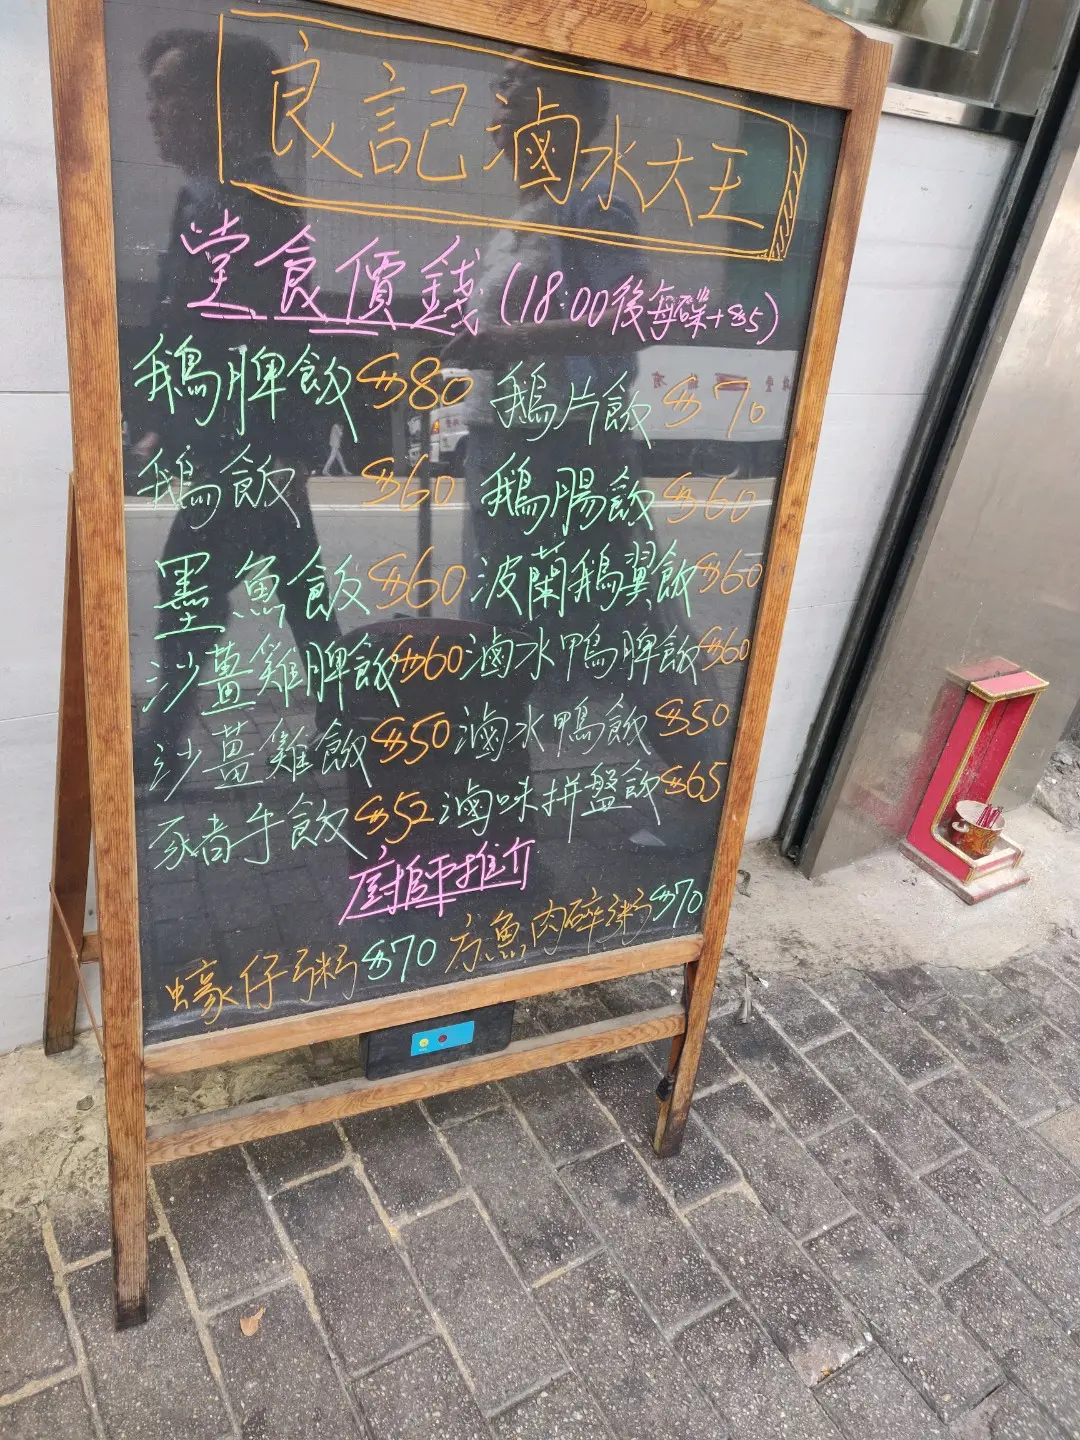 良記滷水大王
堂食價錢(18:00後每碟+$5)
鵝脾飯$80 鵝片飯$70
鵝飯 $60 鵝腸飯$60
墨魚飯$60 波蘭鵝翼飯$60
沙薑雞脾飯$60 滷水鴨脾飯$60
沙薑雞飯$50 滷水鴨飯$50
豕者手飯$52 滷味拼盤飯$65
廚師推介
蠔仔粥$70 方魚肉碎粥$70